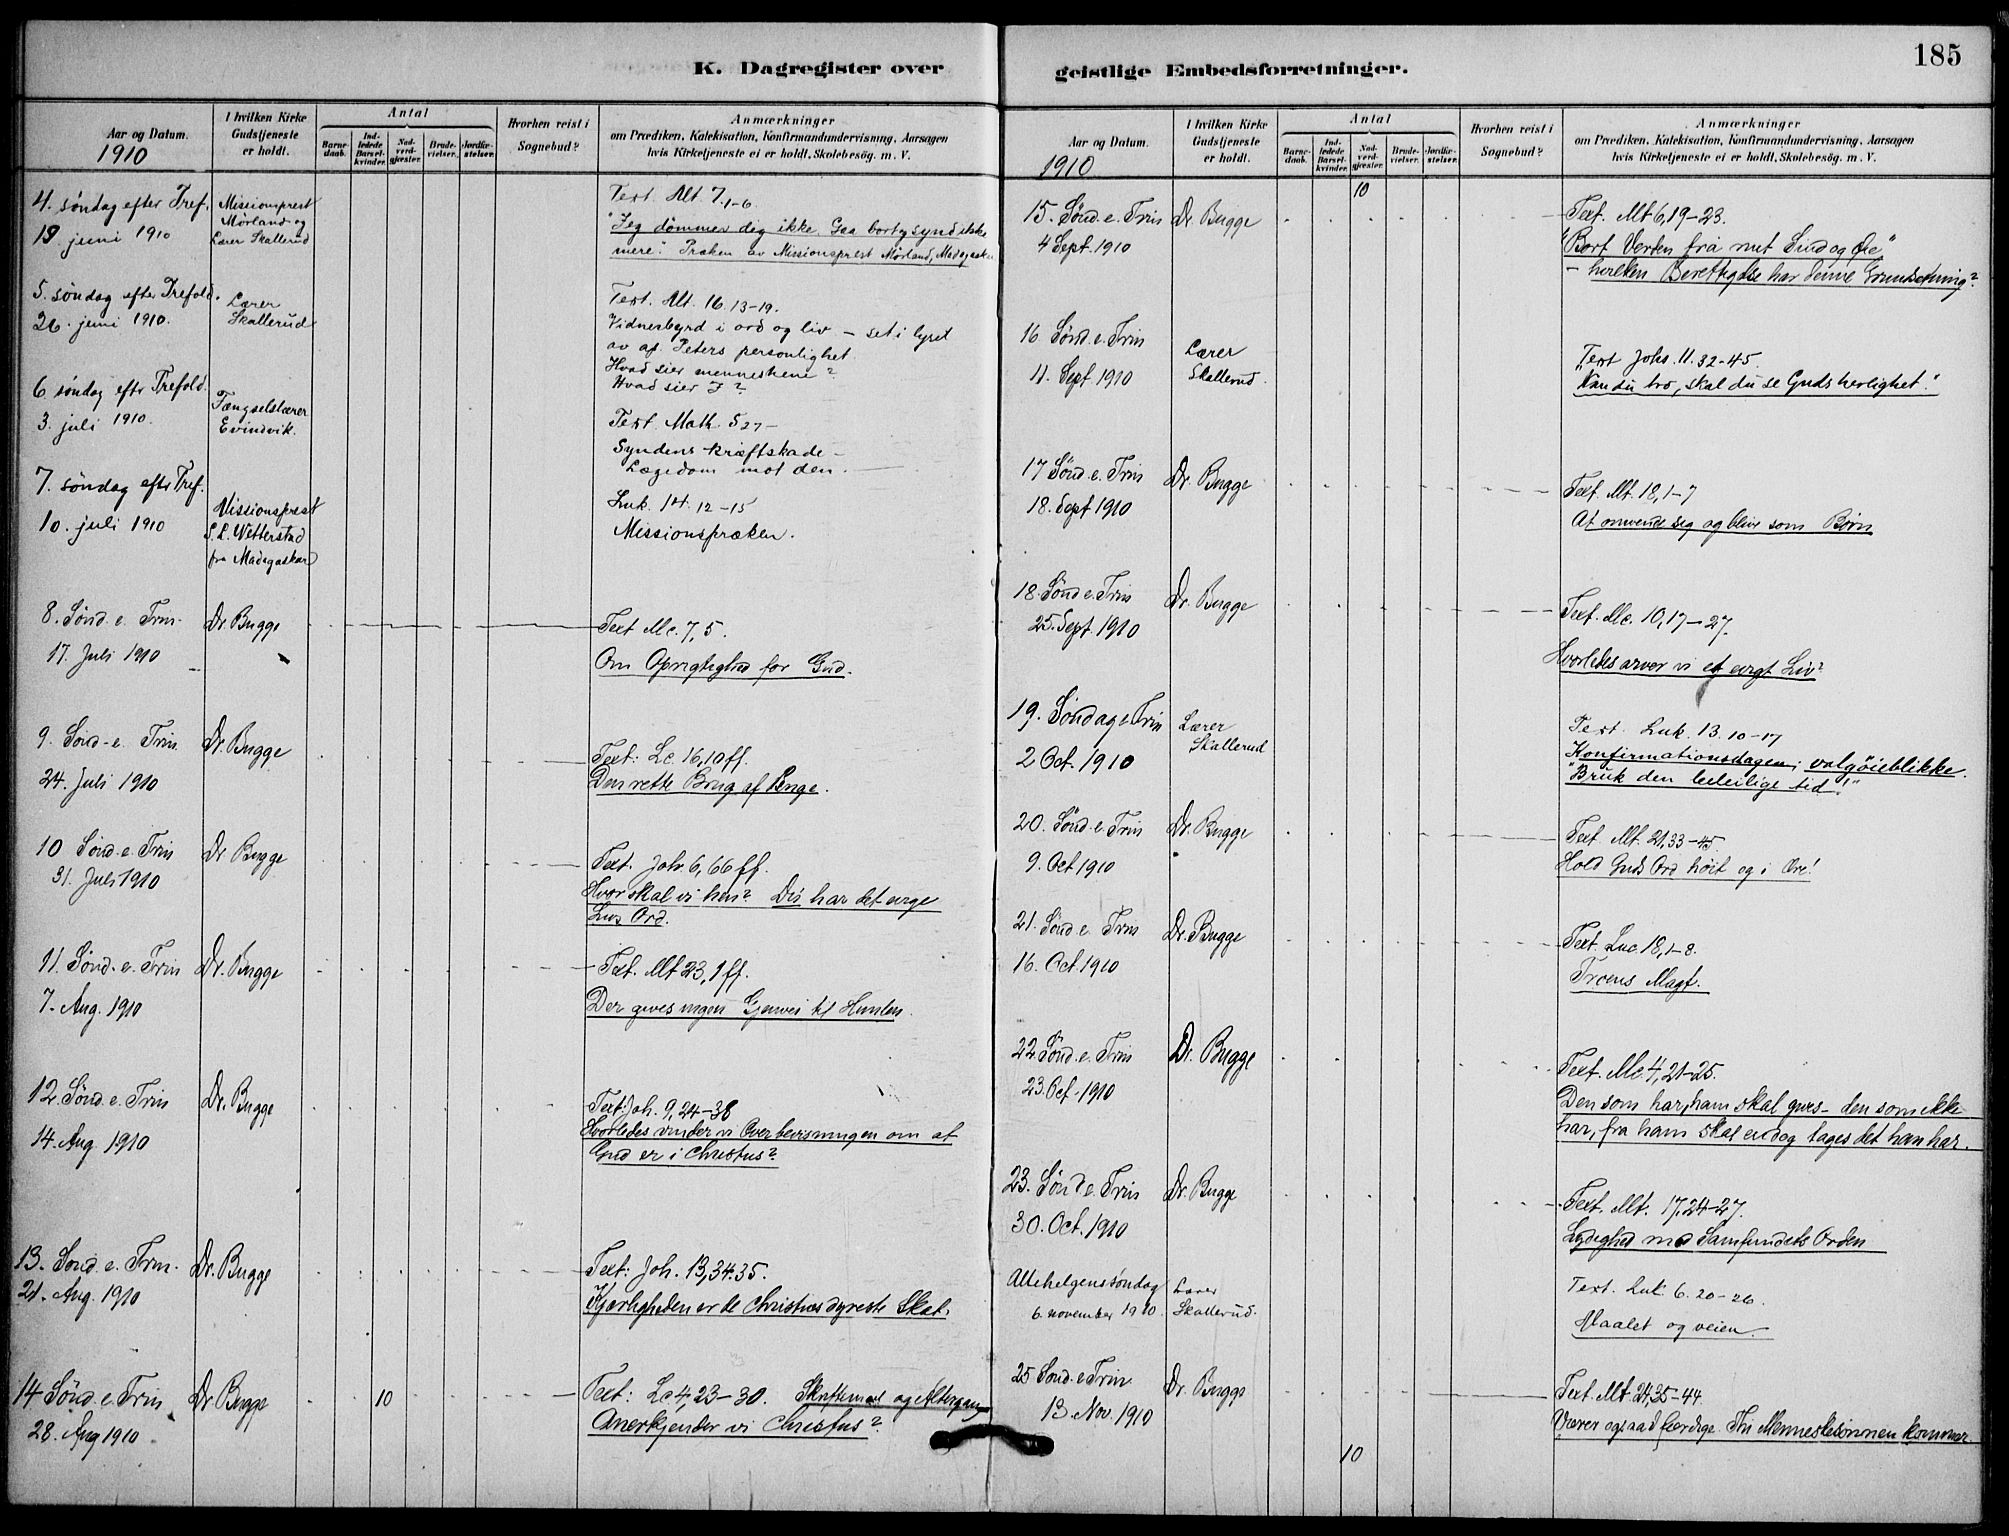 K. Dagregister over
Aar og Datum.
1910
I hvilken Kirke
Gudstjeneste
er holdt.
Antal
Barne-
daab.
Ind-
ledede
Barsel-
kvinder.
Nad-
verd-
gjester.
Brude-
vielser.
Jordfæ-
stelser.
Hvorhen reist i
Sognebud?
Anmærkninger
om Prædiken, Katekisation, Konfirmandundervisning, Aarsagen
hvis Kirketjeneste ei er holdt, Skolebesøg. m. V.
4. søndag efter Tref.
19. juni 1910
Missionsprest
Mørland og
Lærer Skallerud
Text. Mt 7.1-6.
"Jeg dømmer dig ikke. Gaa bort og synd ikke
mere". Præken av Missionsprest Mørland, Madagaskar
5. søndag efter Trefold.
26. juni 1910.
Lærer
Skallerud
Text. Mt. 16 13-19.
Vidnesbyrd i ord og liv - set i lyset
av ap. Peters personlighet.
Hvad sier menneskene?
Hvad sier I?
6 søndag efter Trefold.
3. juli 1910.
Fængselslærer
Evindvik.
Text. Math. 5 27-
Syndens kræftskade -
Lægedom mot den.
7. søndag efter Tref.
10. juli 1910
Missionsprest
S. L. Wetterstad
fra Madagaskar
Luk. 14. 12-15
Missionspræken.
8. Sønd. e. Trin.
17. Juli 1910
Dr. Bugge
Text Mc. 7, 5.
Om Oprigtighed for Gud.
9. Sønd. e. Trin.
24. Juli 1910
Dr. Bugge
Text: Lc. 16, 10 ff.
Den rette Brug af Penge.
10 Sønd. e. Trin
31. Juli 1910
Dr Bugge
Text. Joh. 6, 66 ff.
Hvor skal vi hen? Du har det evige
Livs Ord.
11. Sønd. e. Trin
7. Aug. 1910
Dr. Bugge
Text. Mt 23, 1 ff.
Der gives ingen Gjenvei til Himlen.
12. Sønd. e. Trin
14. Aug 1910
Dr. Bugge
Text: Joh. 9, 24-38
Hvorledes vinder vi Overbevisningen om at
Gud er i Christus?
13. Sønd. e. Trin.
21. Aug. 1910
Dr. Bugge
Text: Joh. 13, 34.35.
Kjærligheden er de Christnes dyreste Skat.
14 Sønd. e. Trin
28. Aug 1910
Dr Bugge
10
Text: Lc 4, 23-30. Skriftemaal og Altergang
Anerkjender vi Christus?
185
geistlige Embedsforretninger.
Aar og Datum.
1910
I hvilken Kirke
Gudstjeneste
er holdt.
Antal
Barne-
daab.
Ind-
ledede
Barsel-
kvinder.
Nad-
verd-
gjester.
Brude-
vielser.
Jordfæ-
stelser.
Hvorhen reist i
Sognebud?
Anmærkninger
om Prædiken, Katekisation, Konfirmandundervisning, Aarsagen
hvis Kirketjeneste ei er holdt, Skolebesøg. m. V.
10
15. Sønd. e. Trin
4 Sept. 1910
Dr. Bugge
Text. Mt 6, 19-23.
"Bort Verden fra mit Sind og Øie"
- hvilken Berettigelse har denne Grundsetning?
16 Sønd. e. Trin
11. Sept 1910
Lærer
Skallerud.
Text Johs. 11. 32-45.
"Kan du tro, skal du se Guds herlighet."
17 Sønd. e. Trin
18. Sept 1910
Dr. Bugge
Text. Mt. 18, 1-7
At omvende sig og blive som Børn
18. Sønd e. Trin
25. Sept. 1910
Dr. Bugge
Text. Mc. 10, 17-27.
Hvorledes arver vi et evigt Liv?
19. Søndag e Trin
2 Oct. 1910
Lærer
Skallerud
Text. Luk. 13. 10-17
Konfirmationsdagen; valgøieblikke.
"Bruk den beleilige tid!"
20. Sønd. e. Trin
9. Oct 1910
Dr. Bugge
Text. Mt. 21, 33-45
Hold Guds Ord høit og i Ære!
21. Sønd. e. Trin
16. Oct. 1910
Dr. Bugge
Text. Luc 18, 1-8.
Troens Magt.
22. Sønd. e. Trin
23. Oct. 1910
Dr. Bugge
Text. Mc. 4, 21-25.
Den som har, ham skal gives - den som ikke
har, fra ham skal endog tages det han har.
23. Sønd e. Trin
30. Oct. 1910
Dr. Bugge
Text. Mt. 17, 24-27.
Lydighed mod Samfundets Orden
Allehelgenssøndag
6. november 1910.
Lærer
Skallerud.
Text. Luk. 6. 20-26.
Maalet og veien.
25 Sønd. e Trin.
13. Nov. 1910
Dr. Bugge
Text. Mt 24, 35-44.
Værer ogsaa I færdige. Thi Menneskesønnen kommer.
10